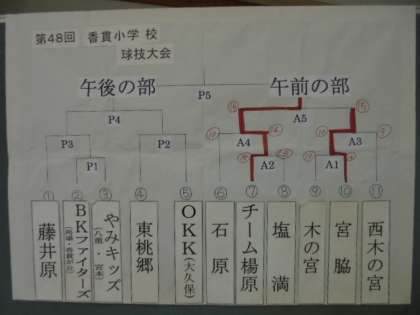 第48回 香貫小学校
球技大会
午後の部
午前の部
P5
P4
A5
P3
P2
A4
A3
P1
A2
A1
① ② ③ ④ ⑤ ⑥ ⑦ ⑧ ⑨ ⑩ ⑪
藤井原
BKファイターズ
やみキッズ
東桃郷
OKK(大久保)
石原
チーム楊原
塩満
木の宮
宮脇
西木の宮